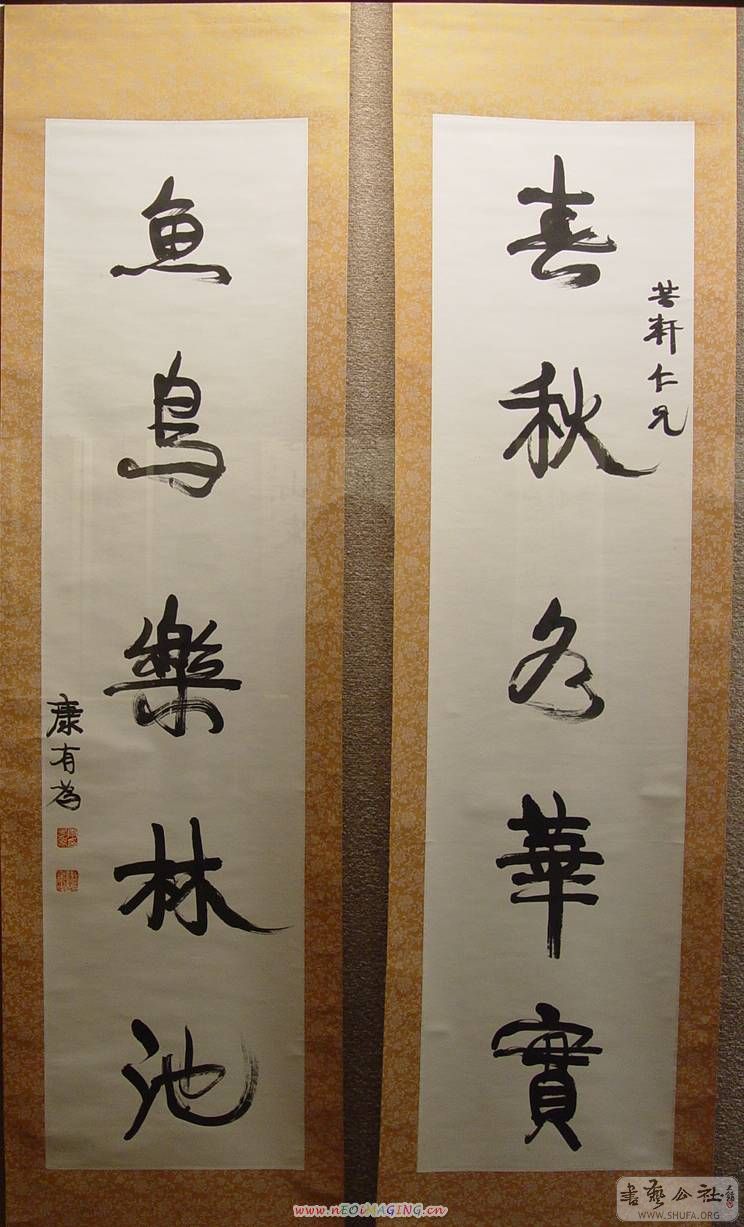 芸軒仁兄
春秋多華實
魚鳥樂林池
康有為
www.nEOiMAGiNG.cn
書藝公社
WWW.SHUFA.ORG